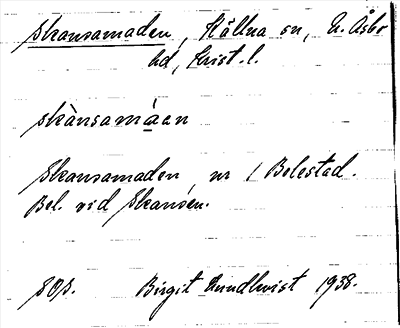 Skansamaden, Hällna sn, N. Åsbo
hd, Krist. l.
skànsamáan
Skansamaden, nr 1 Bolestad.
Bel. vid Skansen.
Birgit Lundkvist 1938.